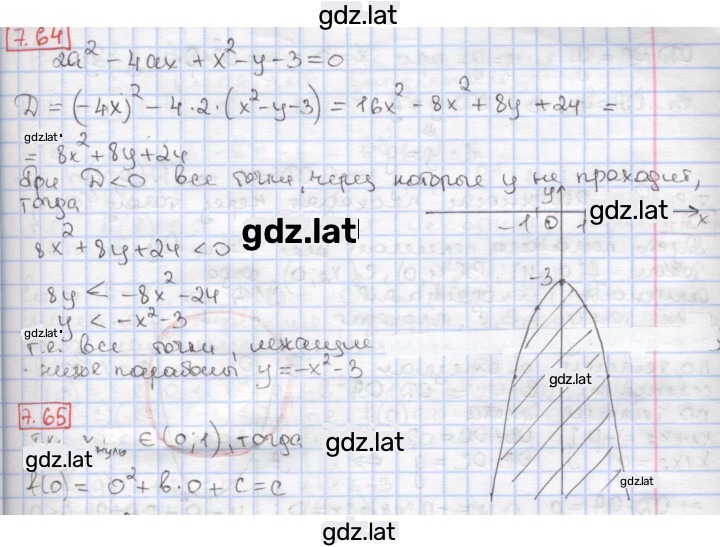 gdz.lat
7.64
2a² - 4ax + x² - y - 3 = 0
D = (-4x)² - 4·2·(x² - y - 3) = 16x² - 8x² + 8y + 24 =
gdz.lat
= 8x² + 8y + 24
При D<0 все точки, через которые y не проходит,
тогда
y
gdz.lat
-1 0 1 x
8x² + 8y + 24 < 0
gdz.lat
-3
8y < -8x² - 24
y < -x² - 3
gdz.lat
т.е. все точки, лежащие
ниже параболы y = -x² - 3
gdz.lat
7.65
т.к. x нуль ∈ (0;1), тогда
gdz.lat
gdz.lat
f(0) = 0² + b·0 + c = c
gdz.lat
gdz.lat